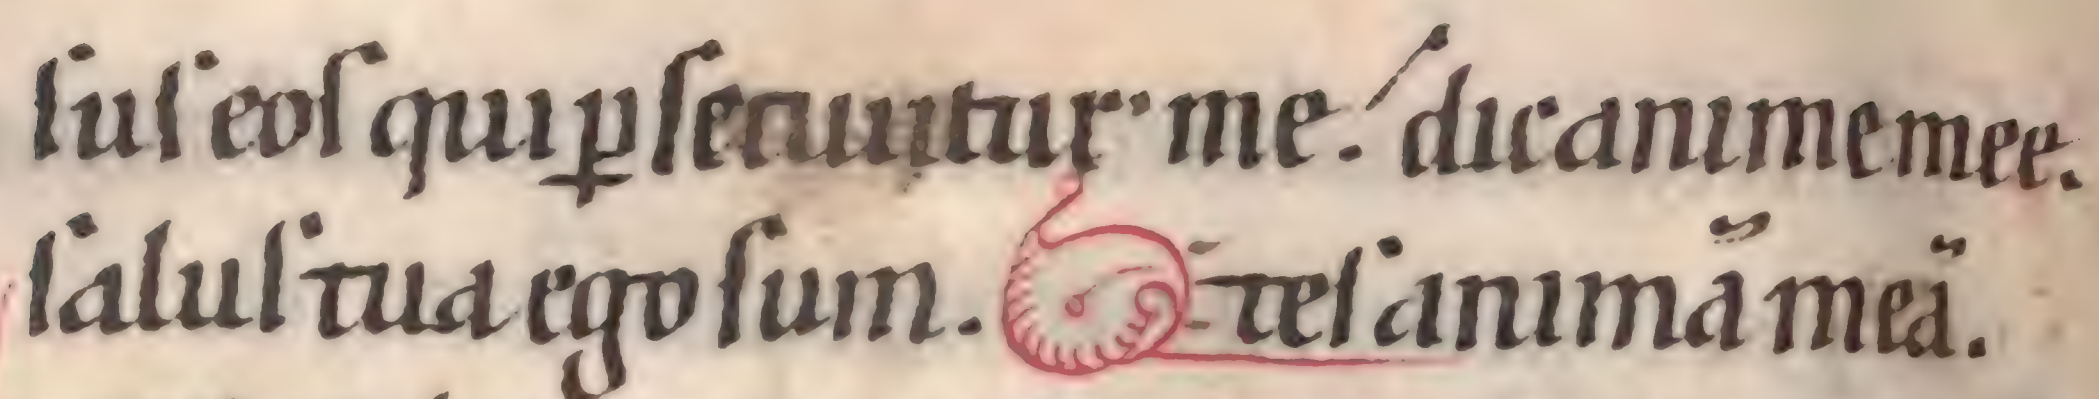 sus eos qui ꝑsecuntur me. dic anime mee.
salus tua ego sum. Ctes animā meā.